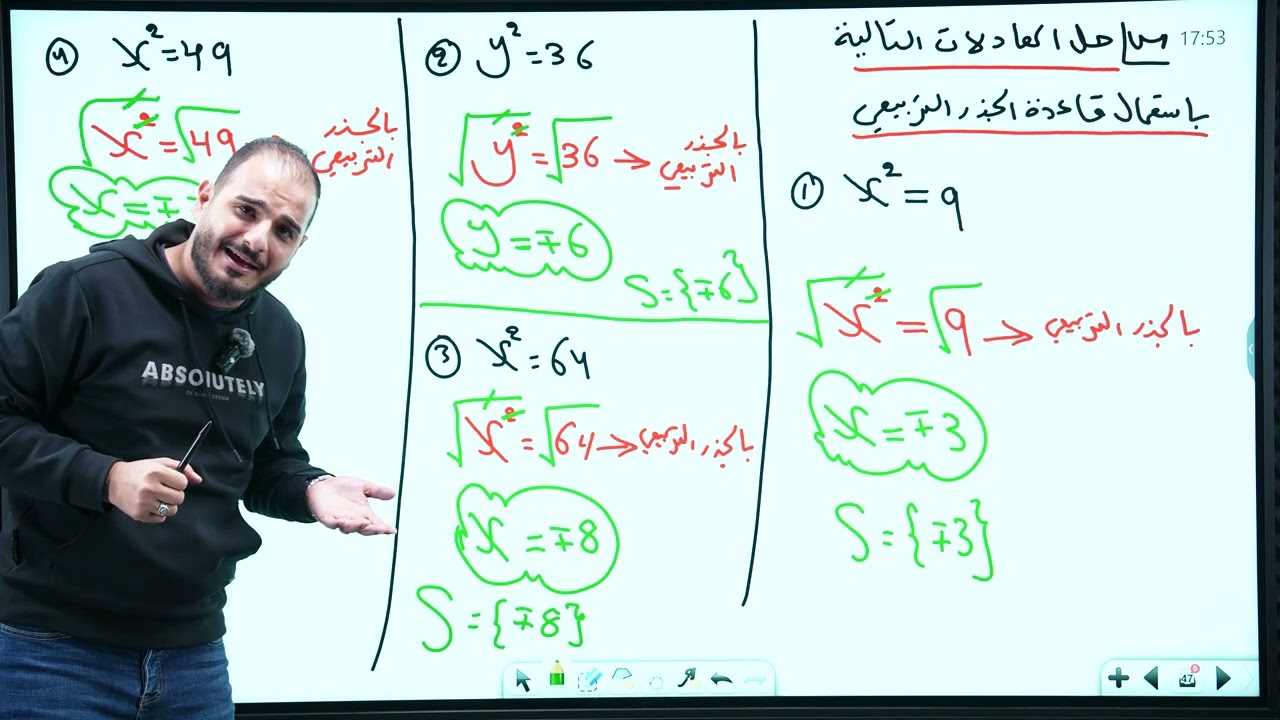 س/ حل المعادلات التالية
باستعمال قاعدة الجذر التربيعي
17:53
① x² = 9
√x² = √9 → بالجذر التربيعي
x = ∓3
S = {∓3}
② y² = 36
√y² = √36 → بالجذر التربيعي
y = ∓6
S = {∓6}
③ x² = 64
√x² = √64 → بالجذر التربيعي
x = ∓8
S = {∓8}
④ x² = 49
√x² = √49
بالجذر
التربيعي
x = ∓
ABSOLUTELY
47